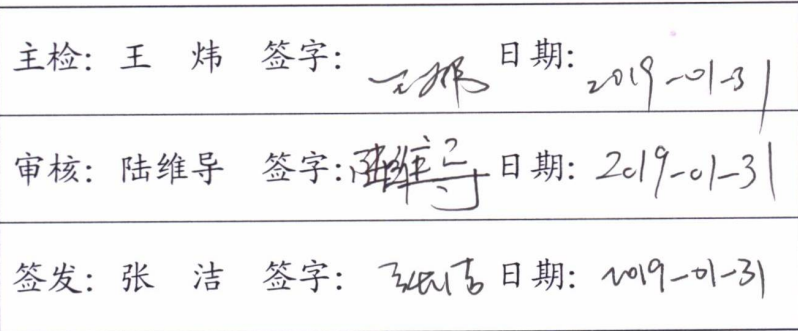 主检：王 炜 签字：王炜 日期：2019-01-31
审核：陆维导 签字：陆维导 日期：2019-01-31
签发：张 洁 签字：张洁 日期：2019-01-31